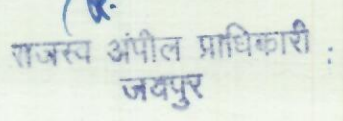 राजस्व अंपील प्राधिकारी :
जयपुर